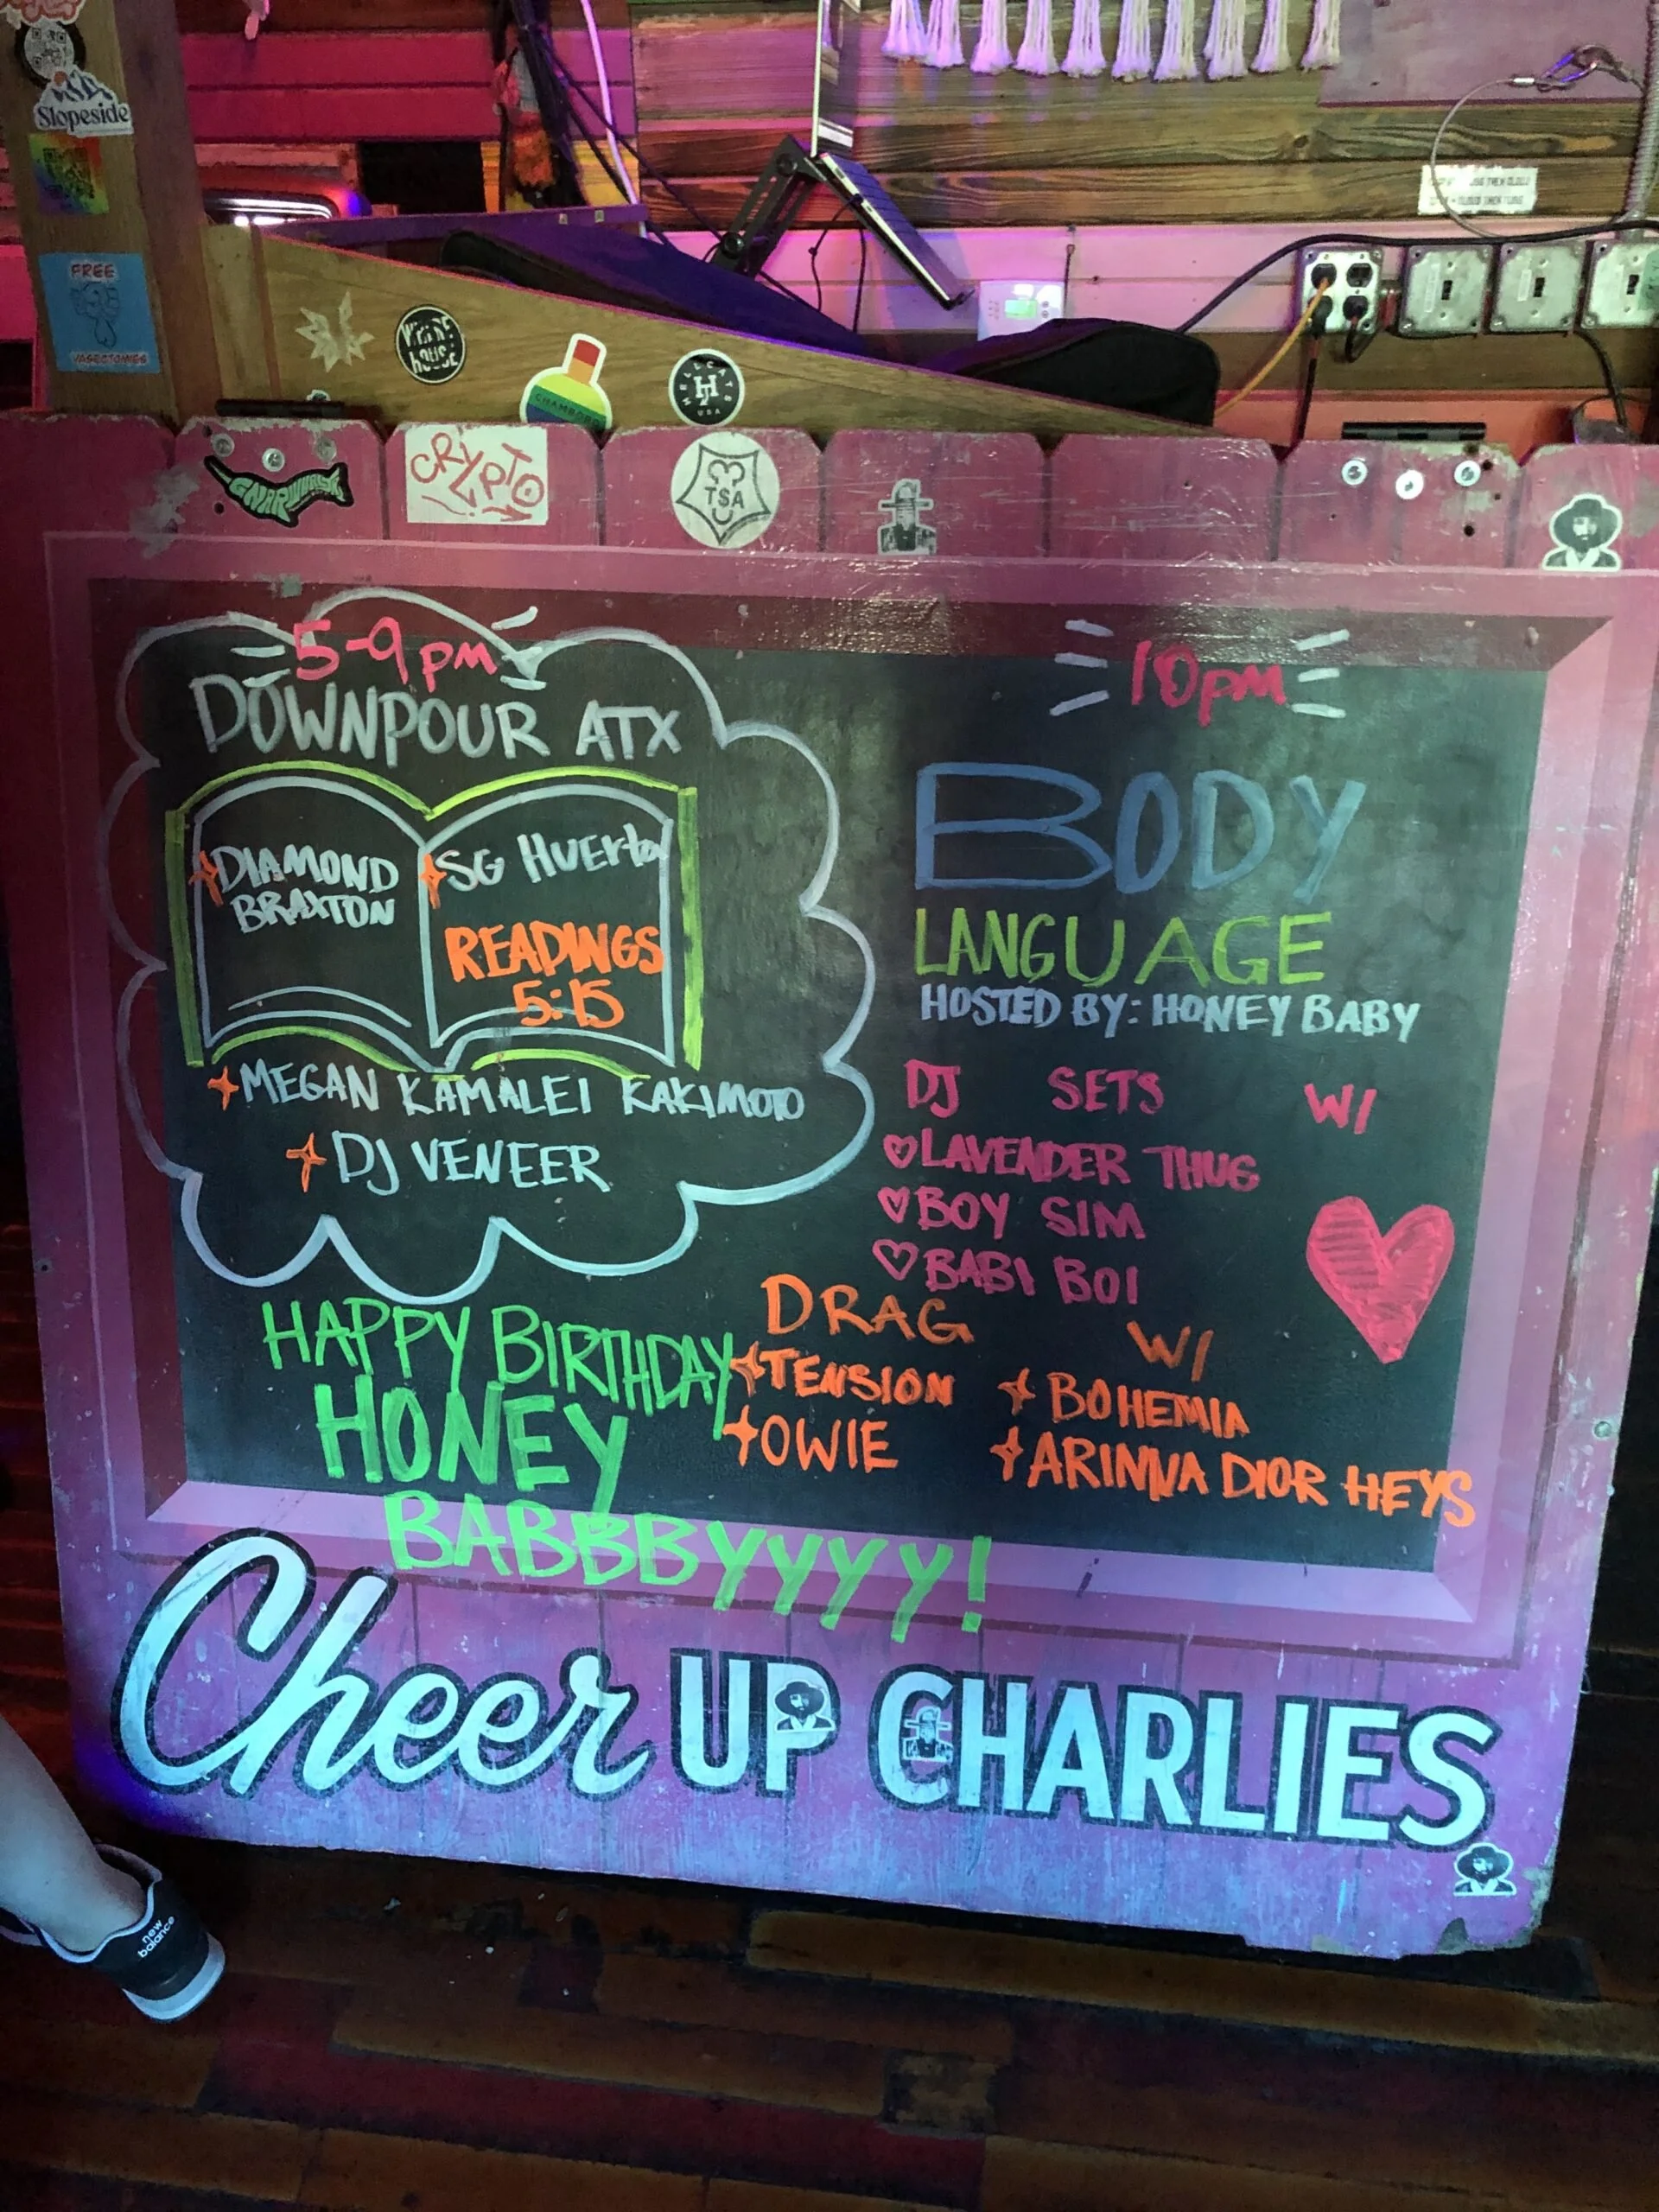 Slopeside
FREE
VASECTOMIES
house
CHAMBORD
HELLCATS
H
USA
GNARWHAL
CRYPTO
TSA
5-9pm
DOWNPOUR ATX
DIAMOND
BRAXTON
SG HUERta
READINGS
5:15
MEGAN KAMALEI KAKIMOTO
DJ VENEER
10pm
BODY
LANGUAGE
HOSTED BY: HONEY BABY
DJ SETS W/
LAVENDER THUG
BOY SIM
BABI BOI
DRAG W/
TENSION
BOHEMIA
OWIE
ARINNA DIOR HEYS
HAPPY BIRTHDAY
HONEY
BABBBYYYY!
Cheer UP CHARLIES
new
balance